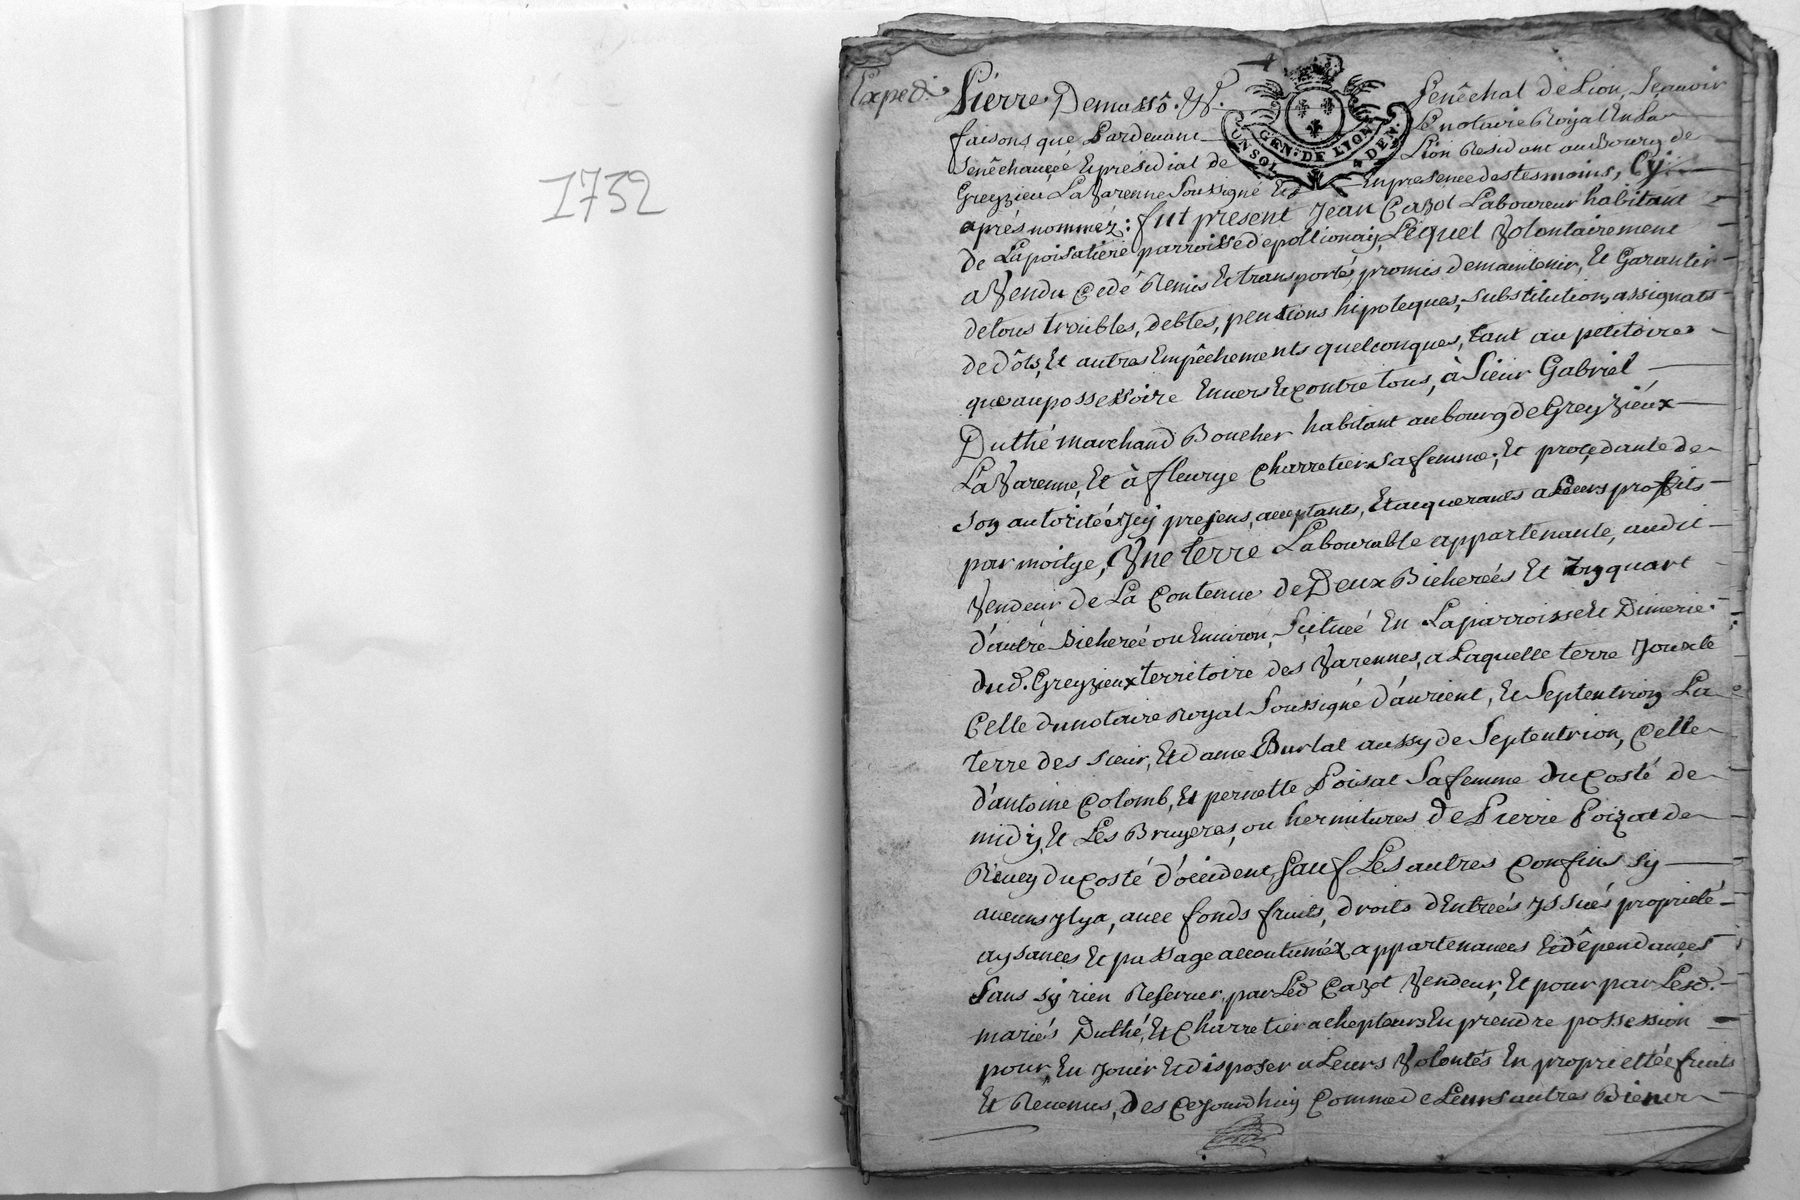 1732
Expedié
Pierre Demasso &c. Senêchal de Lion, Sçauoir
faisons que Pardeuant Le notaire Royal En La
Senêchaucée Et presidial de Lion Residant au Bourg de
Greyzieu La Varenne Soussigné Et En presence des tesmoins, Cy
aprés nommez: fut present Jean Cazot Laboureur habitant
de La poisatiere parroisse de pollionaÿ, Lequel Volontairement
a Vendu Cedé Remis Et transportés promis de maintenir, Et Garantir
de tous troubles, debtes, pentions hipoteques, substitution, assignats
de dôts, Et autres Empêchements quelconques, tant au petitoire
que au possessoire Enuers Et contre tous, à Sieur Gabriel
Duthé marchand Boucher habitant au bourg de Greyzieux
La Varenne, Et à fleurye Charretier sa femme, Et procedante de
son autorité Icy presens, acceptants, Et acquerants a Leurs profits
par moitye, Vne terre Labourable appartenante, audit
Vendeur de La Contenue de Deux Bicherées Et Vn quart
d'autre Bicherée ou Enuiron, Scituée En La parroisse Et Dimerie
dud. Greyzieux territoire des Varennes, a Laquelle terre Jouxte
Celle du notaire Royal Soussigné d'aurient, Et Septentrion La
terre des sieur, Et dame Burlat aussy de Septentrion, Celle
d'antoine Colomb, Et pernette Poisat Sa femme du Costé de
midy, Et Les Bruyeres, ou hermitures de Pierre Poizat de
Reuey du Costé d'occident, Sauf Les autres Confins sy
aucuns y lya, auec fonds fruits, droits d'Entrées yssuës proprieté
aysances Et passage accoutuméz appartenances Et dêpendances
Sans sy rien Reseruer, par Led Cazot Vendeur, Et pour par Lesd.
mariés Duthé, Et Charretier achepteurs En prendre possession
pour, En Jouir Et disposer a Leurs Volontés En proprietté fruits
Et Reuenus, des Ce jourdhuy Comme de Leurs autres Biens
GEN. DE LION